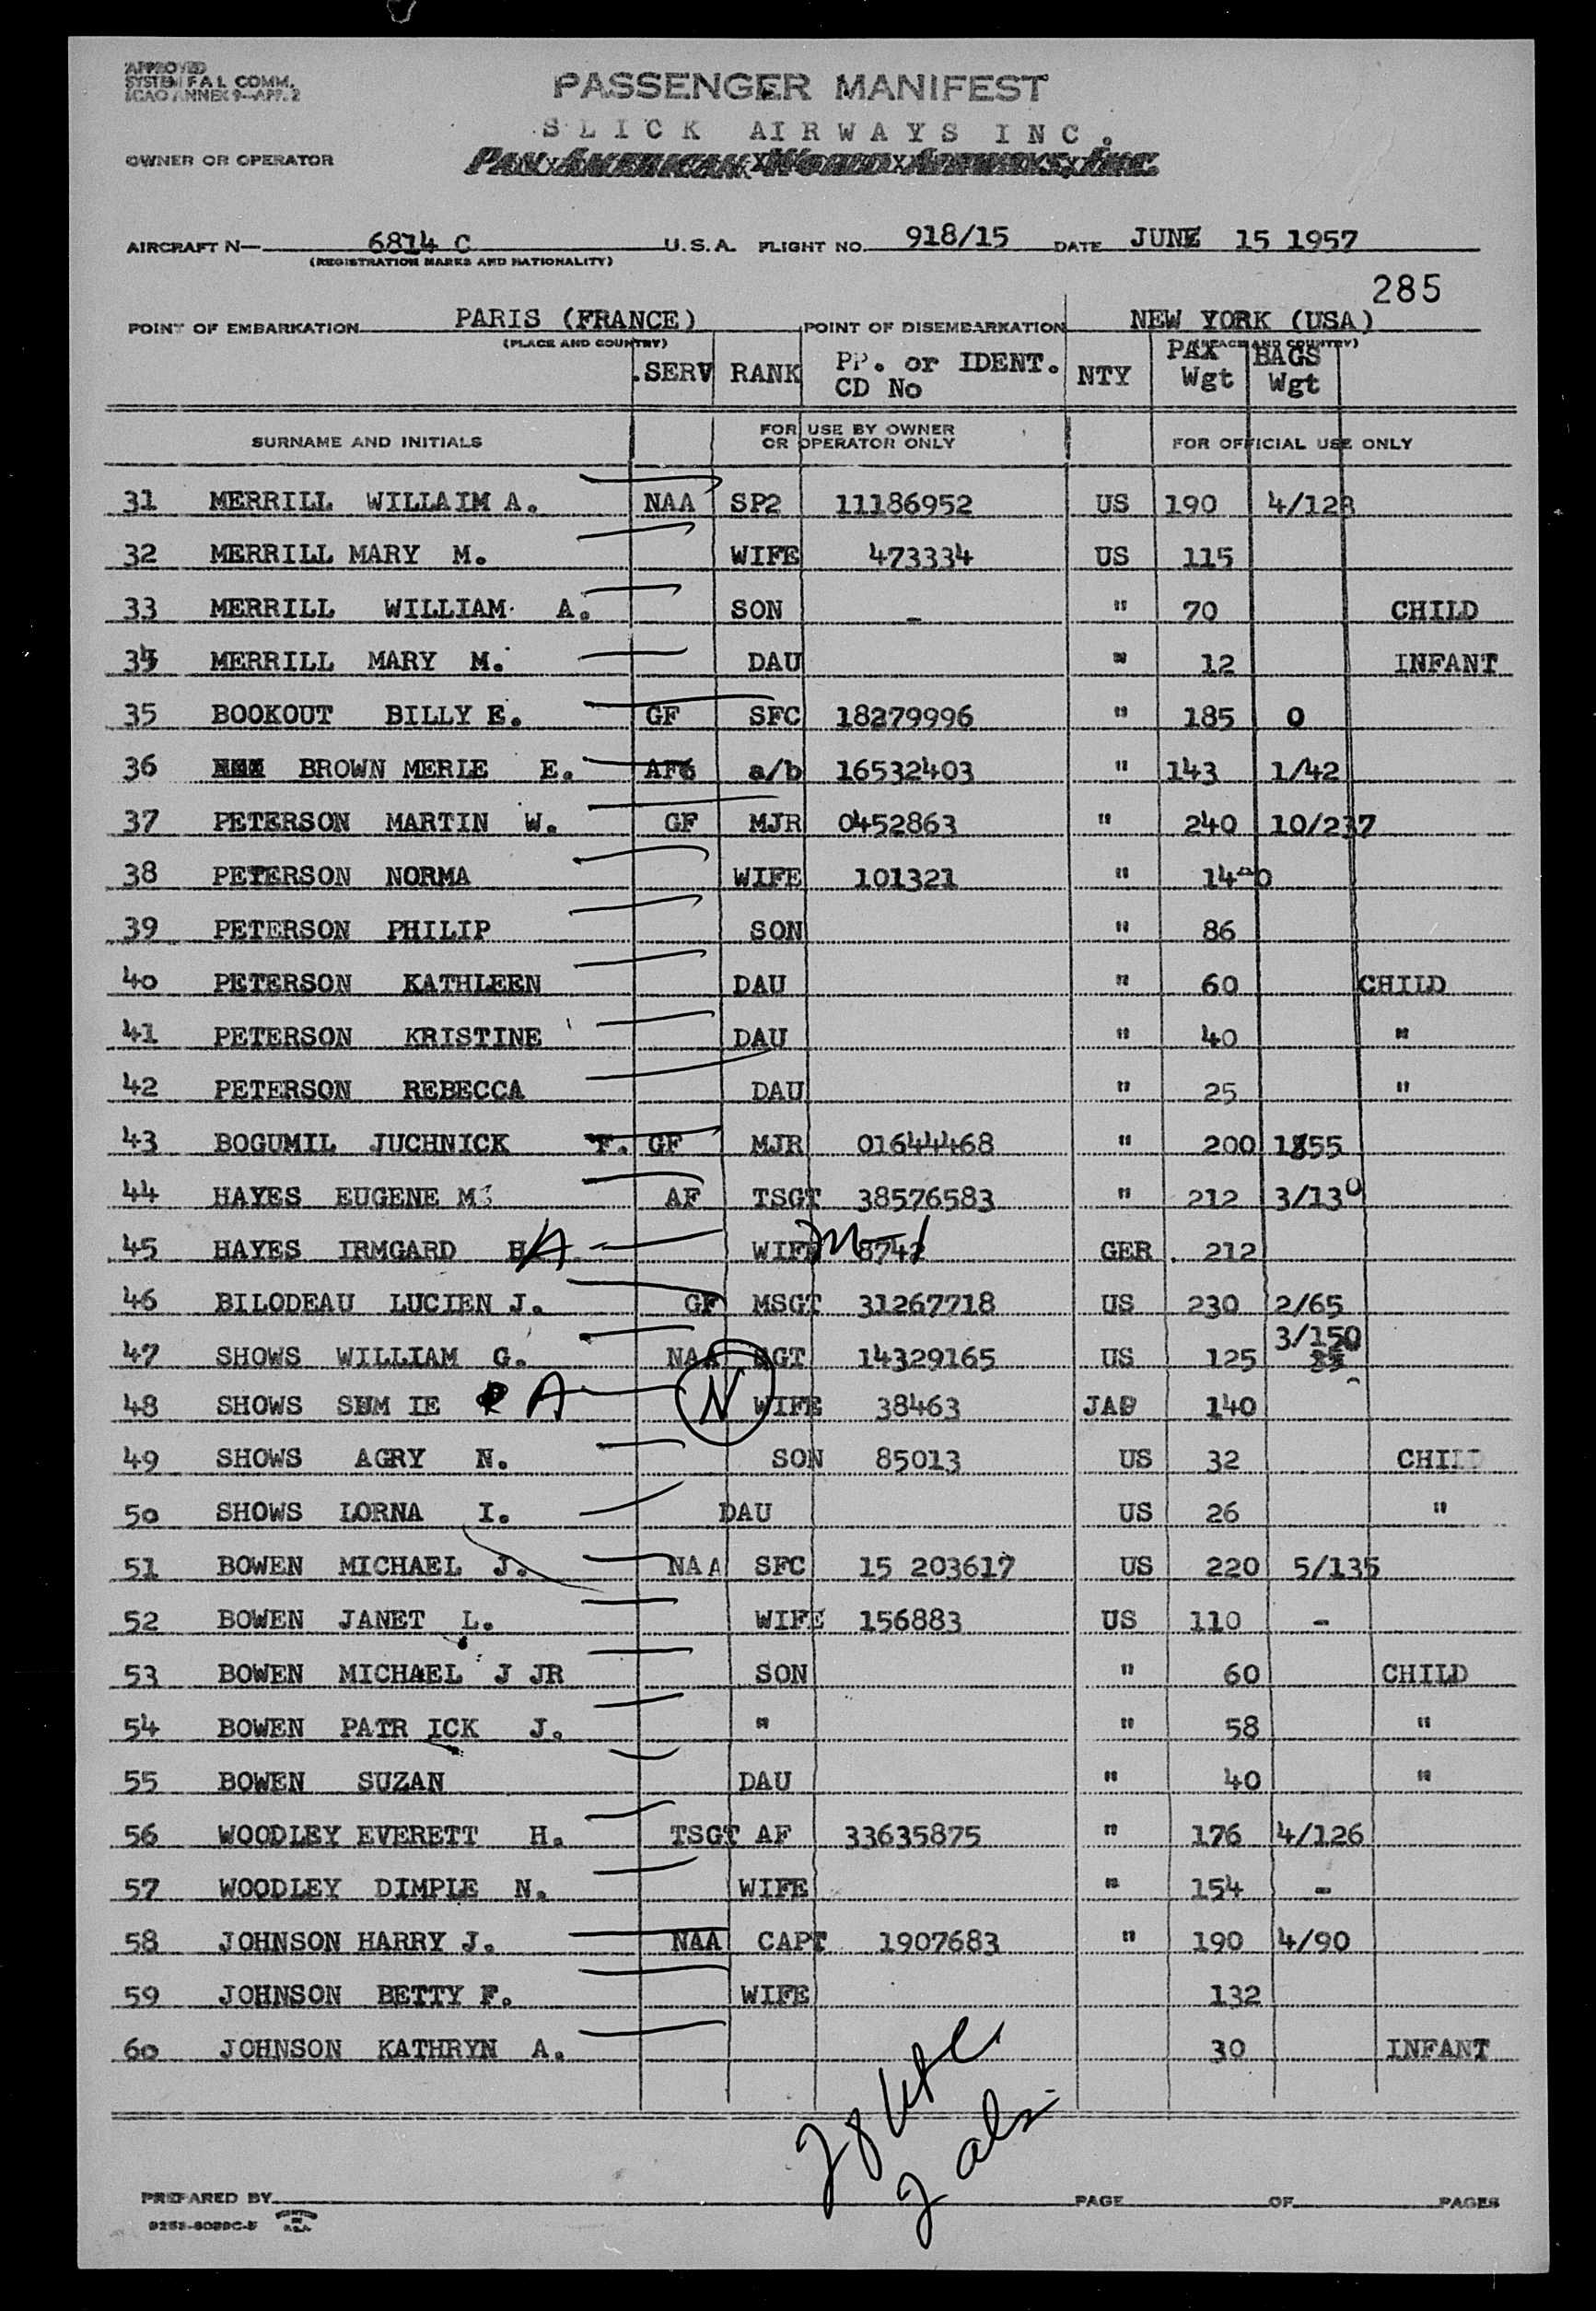 APPROVED
SYSTEM F A L COMM.
ICAO ANNEX 9—APP. 2
PASSENGER MANIFEST
SLICK AIRWAYS INC.
OWNER OR OPERATOR PAN AMERICAN WORLD AIRWAYS, INC.
AIRCRAFT N— 6814 C U.S.A. FLIGHT NO. 918/15 DATE JUNE 15 1957
(REGISTRATION MARKS AND NATIONALITY)
285
POINT OF EMBARKATION PARIS (FRANCE) POINT OF DISEMBARKATION NEW YORK (USA)
(PLACE AND COUNTRY) (PLACE AND COUNTRY)
SERV RANK PP. or IDENT. CD No NTY PAX Wgt BAGS Wgt
SURNAME AND INITIALS FOR USE BY OWNER OR OPERATOR ONLY FOR OFFICIAL USE ONLY
31 MERRILL WILLAIM A. NAA SP2 11186952 US 190 4/128
32 MERRILL MARY M. WIFE 473334 US 115
33 MERRILL WILLIAM A. SON - " 70 CHILD
34 MERRILL MARY M. DAU " 12 INFANT
35 BOOKOUT BILLY E. GF SFC 18279996 " 185 0
36 BROWN MERLE E. AF a/b 16532403 " 143 1/42
37 PETERSON MARTIN W. GF MJR 0452863 " 240 10/237
38 PETERSON NORMA WIFE 101321 " 140
39 PETERSON PHILIP SON " 86
40 PETERSON KATHLEEN DAU " 60 CHILD
41 PETERSON KRISTINE DAU " 40 "
42 PETERSON REBECCA DAU " 25 "
43 BOGUMIL JUCHNICK F. GF MJR 01644468 " 200 1/55
44 HAYES EUGENE M. AF TSGT 38576583 " 212 3/130
45 HAYES IRMGARD A WIFE M-1 8742 GER 212
46 BILODEAU LUCIEN J. GF MSGT 31267718 US 230 2/65
47 SHOWS WILLIAM G. NAA SGT 14329165 US 125 3/150
48 SHOWS SUM IE A N WIFE 38463 JAP 140
49 SHOWS AGRY N. SON 85013 US 32 CHILD
50 SHOWS LORNA I. DAU US 26 "
51 BOWEN MICHAEL J. NAA SFC 15 203617 US 220 5/135
52 BOWEN JANET L. WIFE 156883 US 110 -
53 BOWEN MICHAEL J JR SON " 60 CHILD
54 BOWEN PATR ICK J. " " 58 "
55 BOWEN SUZAN DAU " 40 "
56 WOODLEY EVERETT H. TSGT AF 33635875 " 176 4/126
57 WOODLEY DIMPLE N. WIFE " 154 -
58 JOHNSON HARRY J. NAA CAPT 1907683 " 190 4/90
59 JOHNSON BETTY F. WIFE 132
60 JOHNSON KATHRYN A. 30 INFANT
2 als
PREPARED BY PAGE OF PAGES